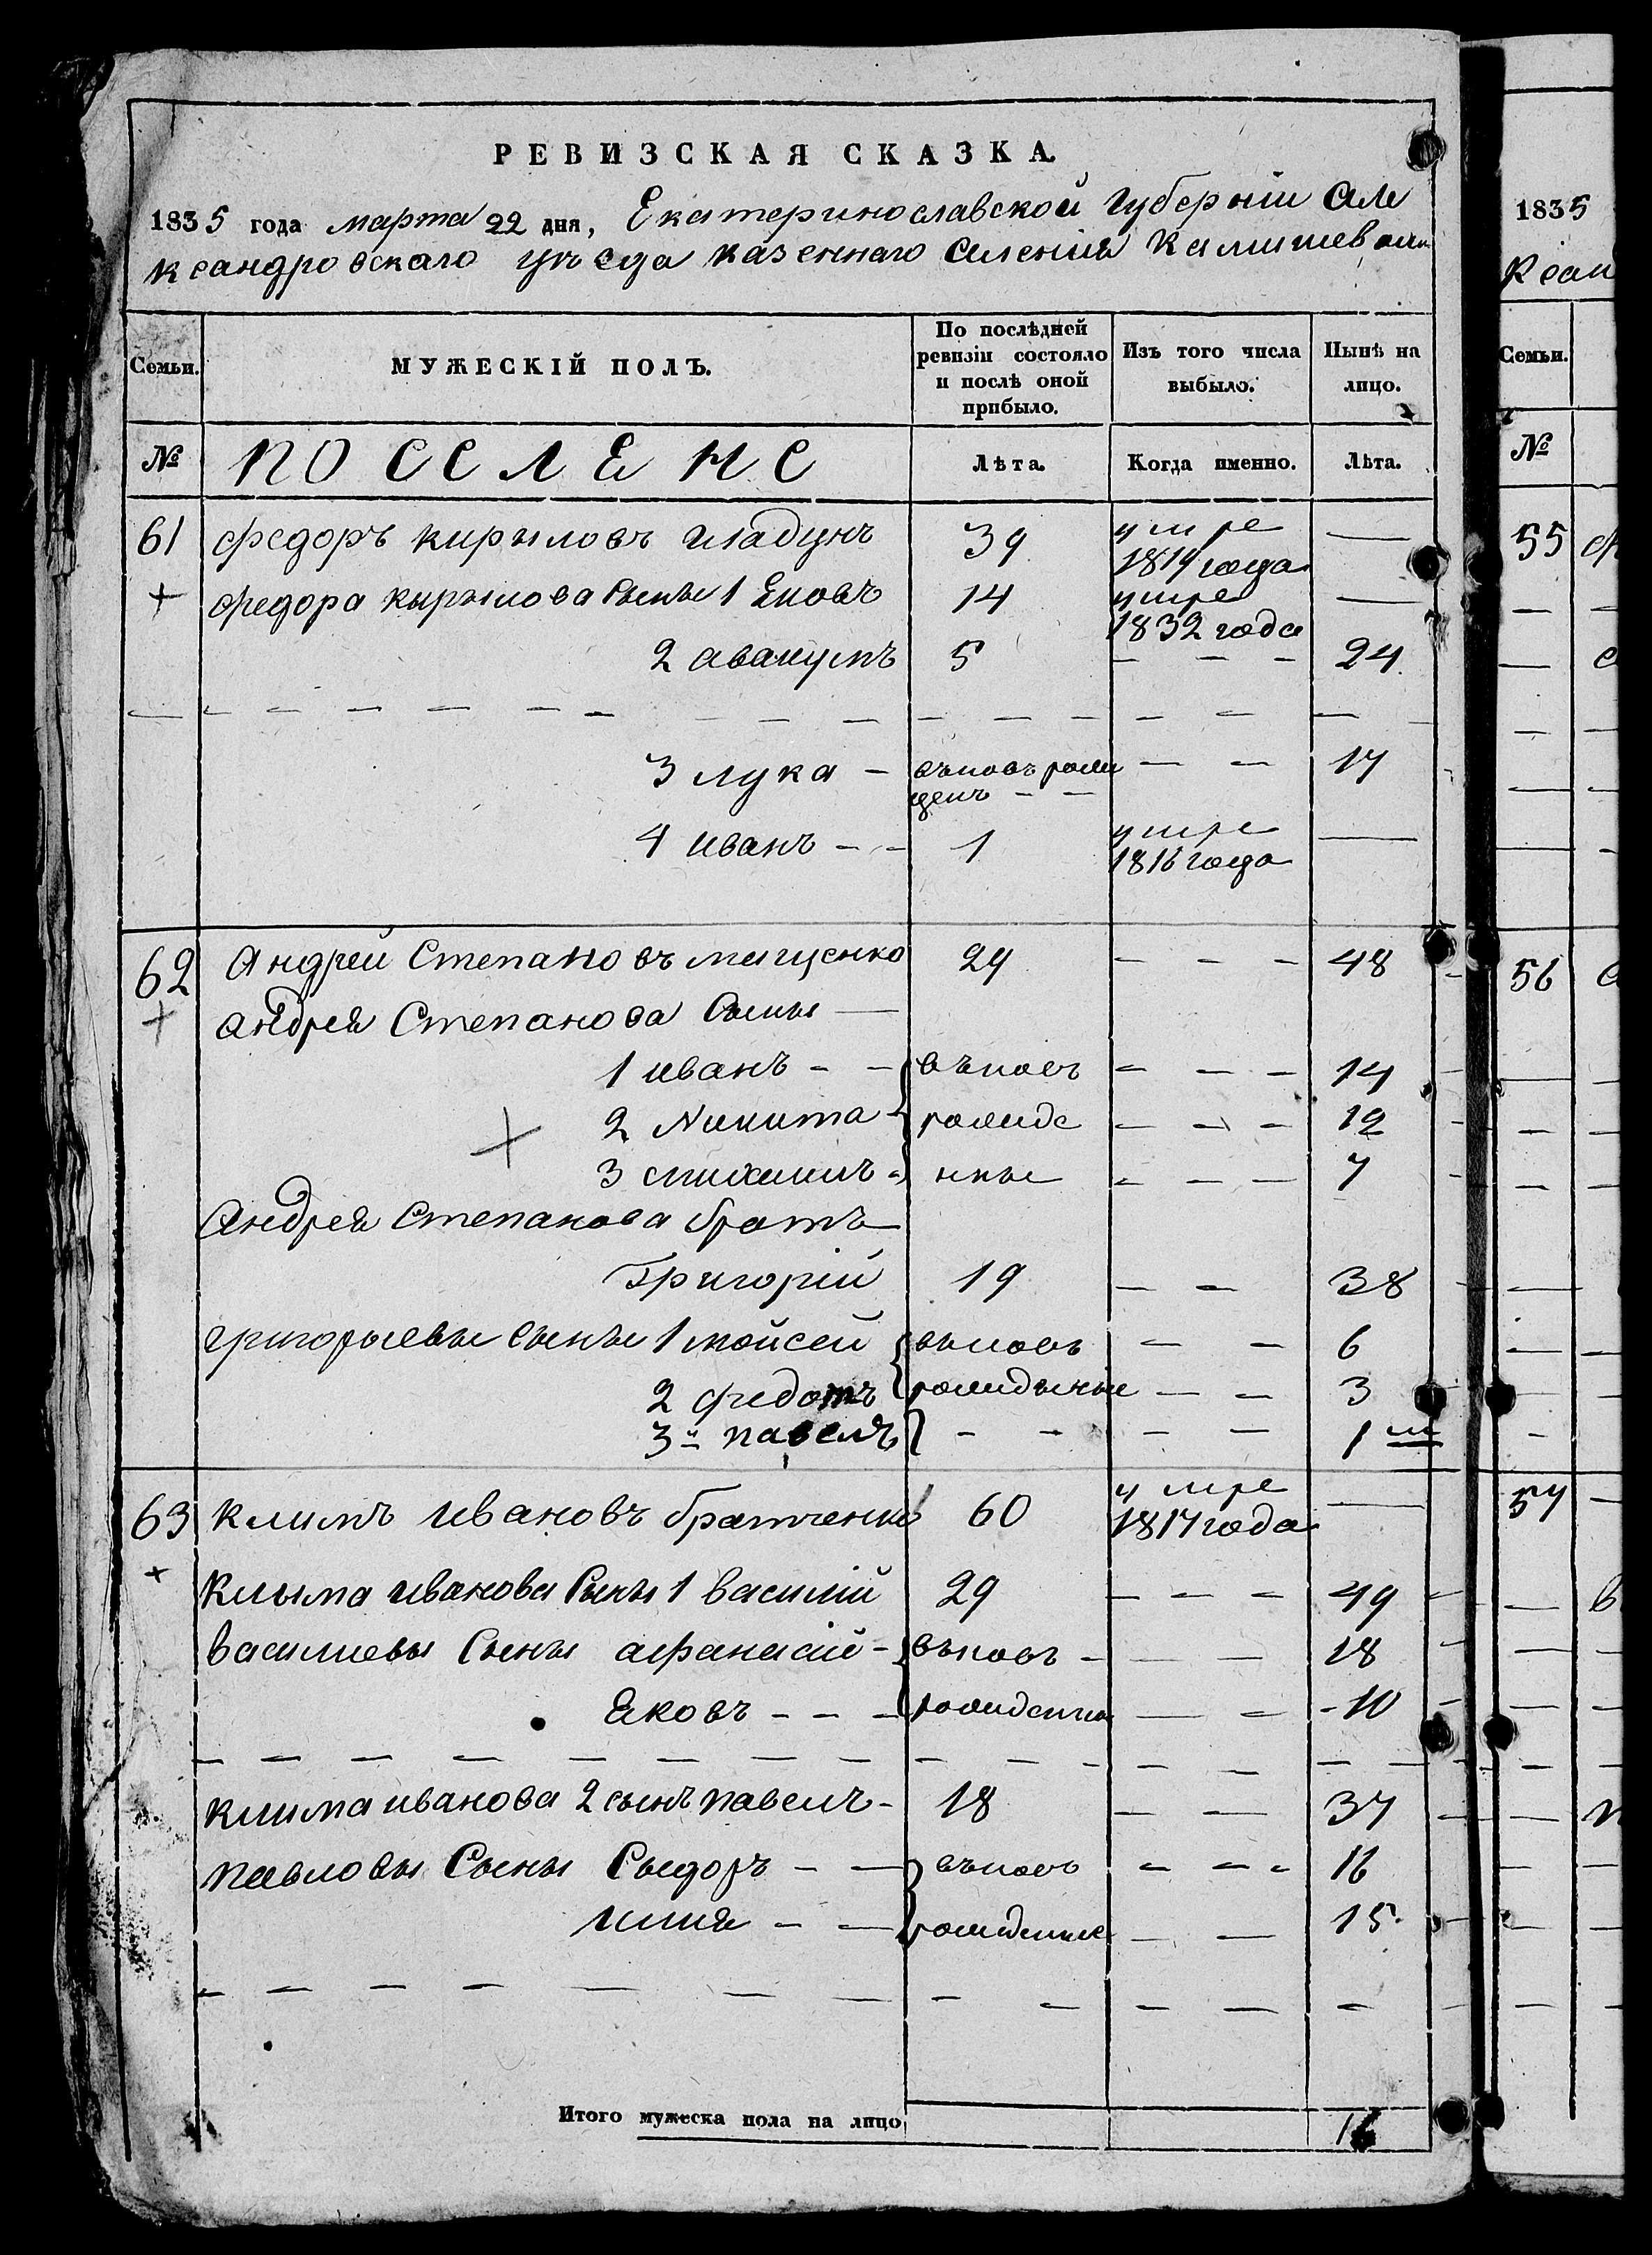 РЕВИЗСКАЯ СКАЗКА.
1835 года марта 22 дня, Екатеринославской Губерніи Але
ксандровскаго уъезда казеннаго Селенія Камишеваъ
Семьи. МУЖЕСКІЙ ПОЛЪ. По послѣдней ревизіи состояло и послѣ оной прибыло. Изъ того числа выбыло. Нынѣ на лицо.
№ ПОСЕЛЕНЕ Лѣта. Когда именно. Лѣта.
61 Федоръ кириловъ гладунъ 39 умре 1819 года —
+ Федора кирилова Сыны 1 Яковъ 14 умре 1832 года —
2 авакумъ 5 — — — 24
3 лука — въновь рожденъ — — — — 17
4 иванъ — — 1 умре 1816 года —
62 Андрей Степановъ 29 — — — 48
+ андрея Степанова Сыны —
1 иванъ — — въновь — — — 14
2 Никита рожде — — — 12
3 нные — — — 7
Андрея Степанова братъ
Григорій 19 — — 38
григорьевы Сыны 1 мойсей въновь — — 6
2 федотъ рожденые — — 3
3й павелъ — — — — 1 м
63 Климъ Ивановъ братченко 60 умре 1817 года —
+ Клыма иванова Сыны 1 василій 29 — — — 49
василиевы Сыны афанасій — въновь — — — 18
Яковъ — — — рожденные — — 10
Клима иванова 2 сынъ павелъ — 18 — — 37
павловы Сыны Сыдоръ — — въновь — — — 16
илия — — рожденные — — 15
Итого мужеска пола на лицо 16
1835
Ксан
Семьи.
№
55
56
57